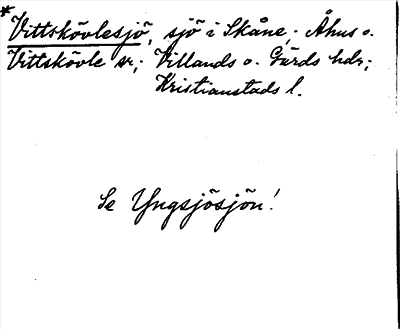 *Vittskövlesjö, sjö i Skåne; Åhus o.
Vittskövle sr; Villands o. Gärds hdr;
Kristianstads l.
Se Yngsjösjön!